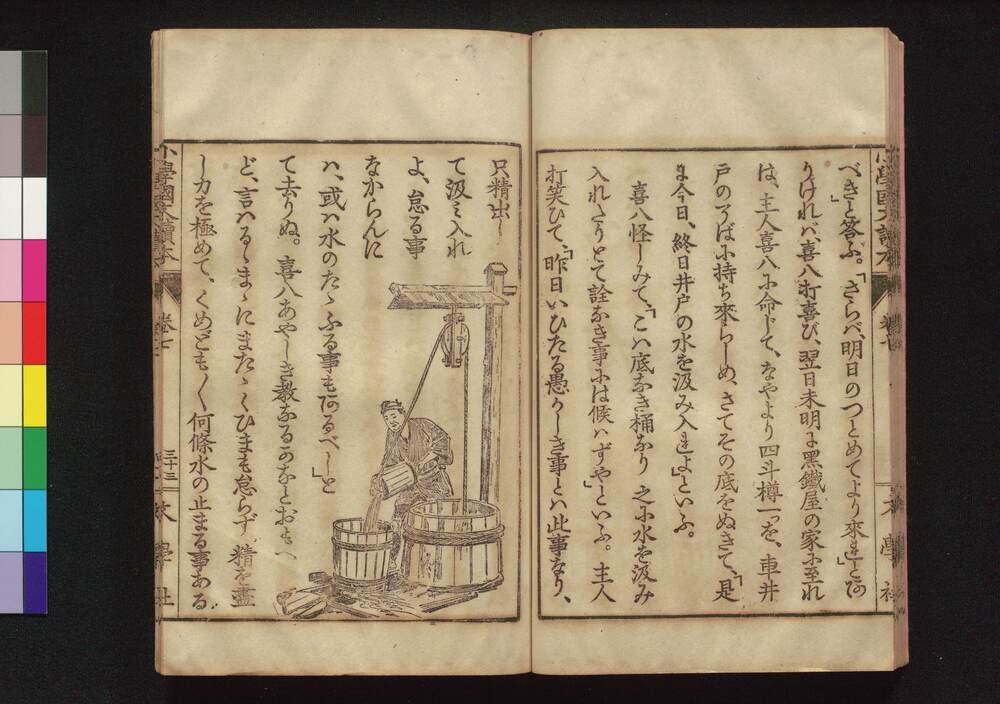 べきと答ふ。「さらバ、明日のつとめてより來れ」とあ
りけれバ、喜八打喜び、翌日未明に黑鐵屋の家に至れ
ば、主人喜八に命じて、なやより四斗樽一つを、車井
戸のそばに持ち來らしめ、さてその底をぬきて、「是
に今日、終日井戸の水を汲み入れよ」といふ。
喜八怪しみて、「こハ底なき桶なり之に水を汲み
入れたりとて詮なき事には候ハずや」といふ。主人
打笑ひて、「昨日いひたる愚かしき事とハ此事なり、
只精出し
て汲み入れ
よ、怠る事
なからんに
ハ、或ハ水のたゝふる事もあるべし」と
て去りぬ。喜八あやしき教なるかなとおもへ
ど、言ハるゝまゝにまたゝくひまも怠らず、精を盡
し力を極めて、くめども〳〵何條水の止まる事ある
小學國文讀本
卷七
三十三
文學社